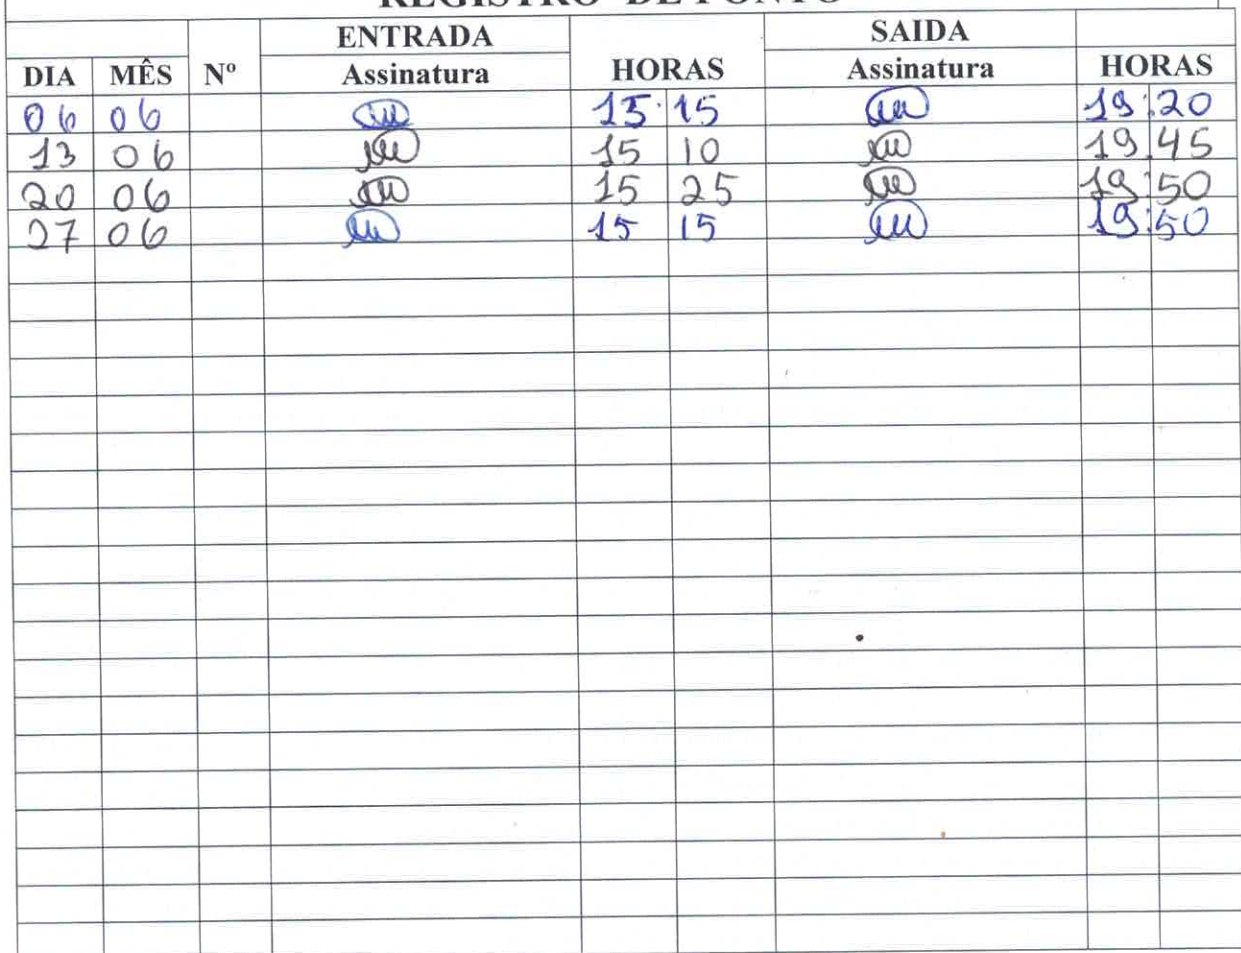 REGISTRO DE PONTO
ENTRADA SAIDA
DIA MÊS Nº Assinatura HORAS Assinatura HORAS
06 06 15:15 19:20
13 06 15 10 19:45
20 06 15 25 19:50
27 06 15 15 19:50